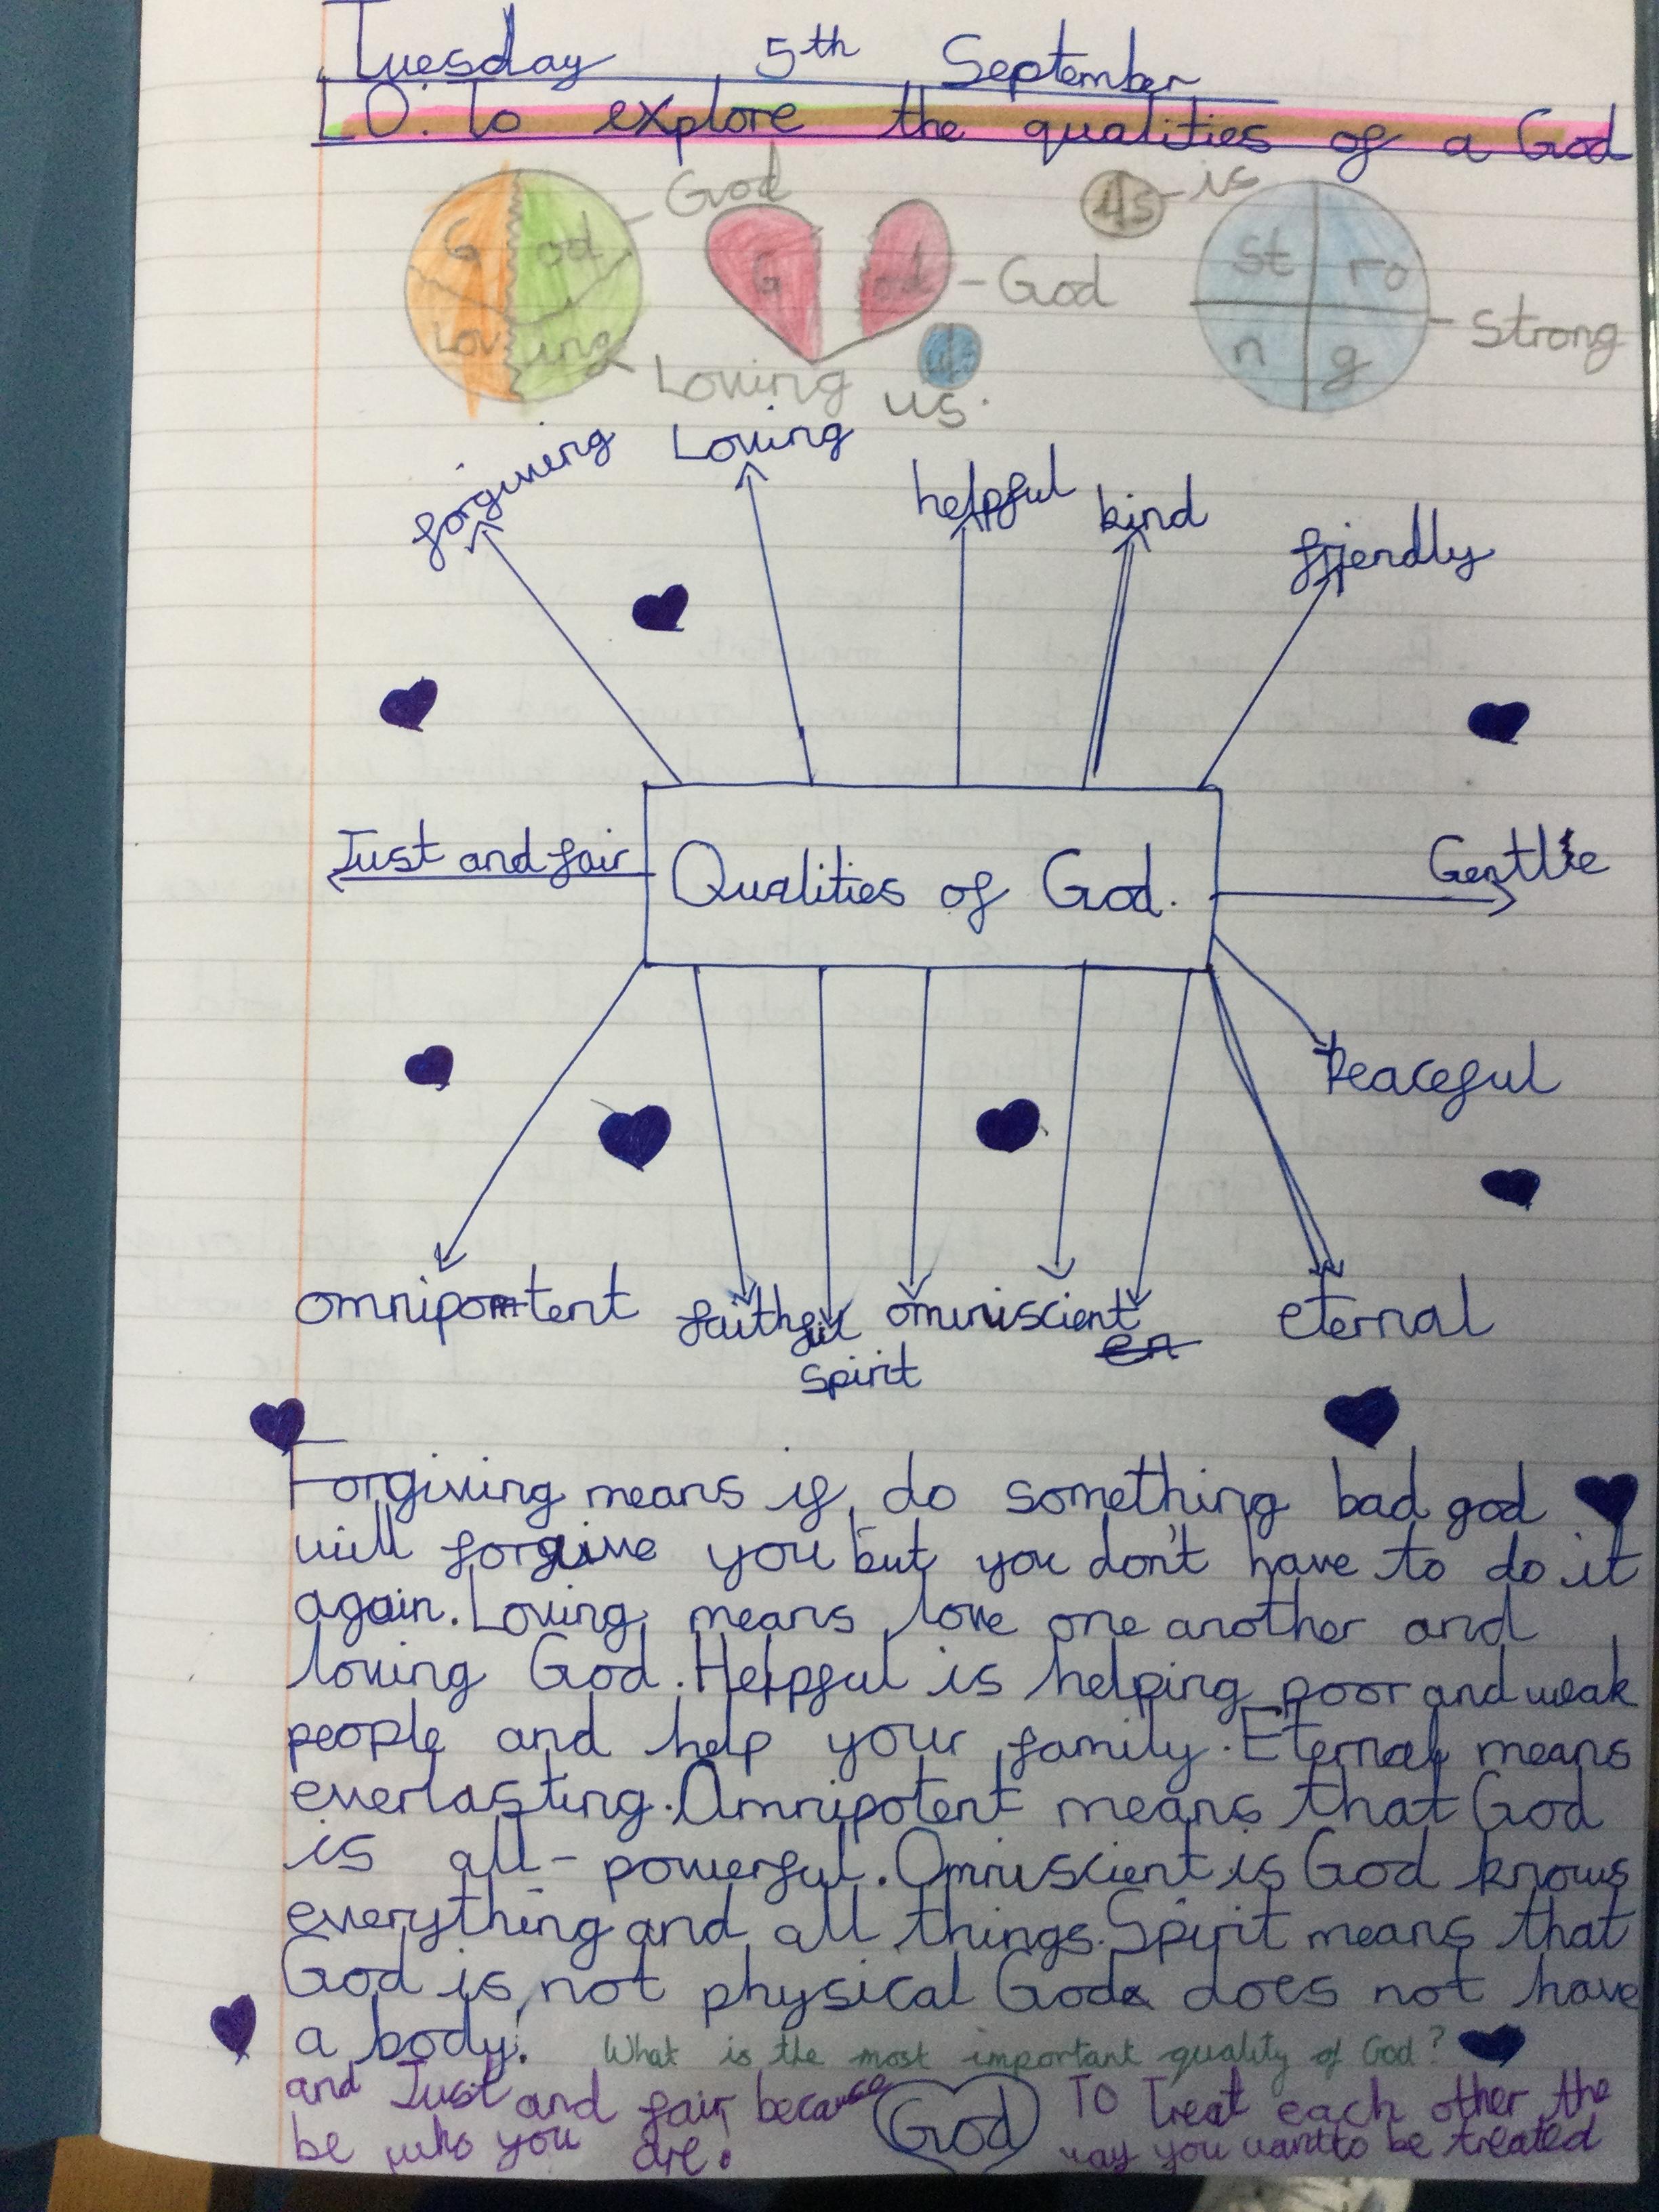 Tuesday 5th September
L.O. To explore the qualities of a God
God is
G od G od us st ro
God
Strong
Lov ing us n g
Loving us.
forgiving Loving helpful kind friendly
Just and fair Qualities of God. Gentle
Peaceful
omnipotent faithful ominiscient eternal
spirit en
Forgiving means if, do something bad god
will forgive you but you don't have to do it
again. Loving means love one another and
loving God. Helpful is helping poor and weak
people and help your family. Eternal means
everlasting. Omnipotent means that God
is all-powerful. Omniscient is God knows
everything and all things. Spirit means that
God is not physical God does not have
a body. What is the most important quality of God?
and Just and fair because God To Treat each other the
be who you are. way you want to be treated